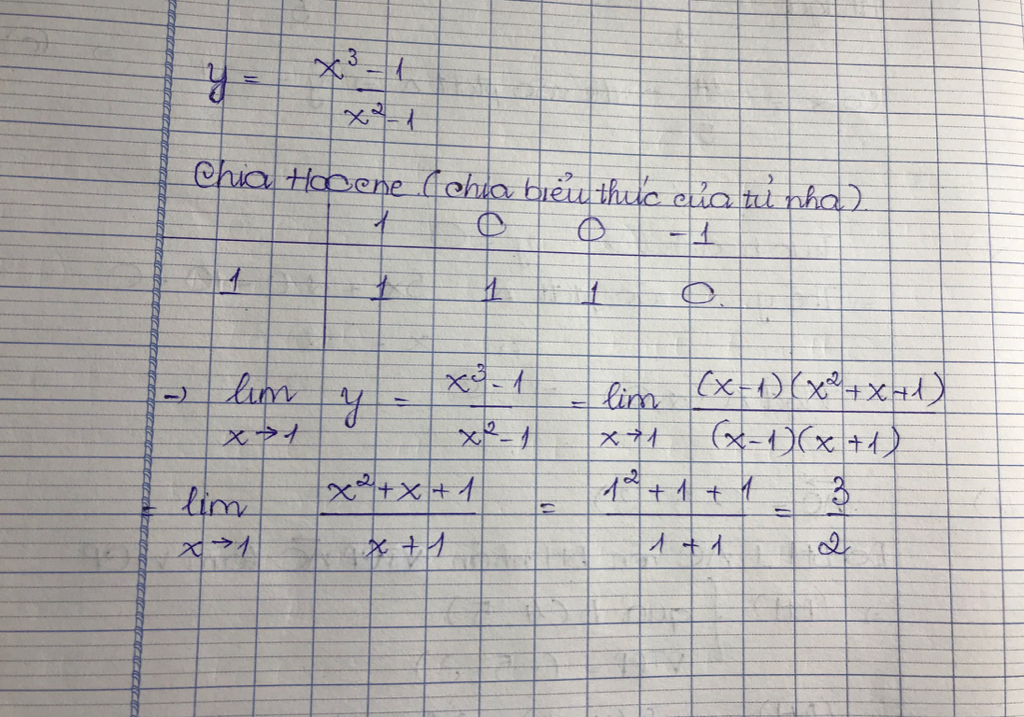 y = x³ - 1 / x² - 1
Chia Hoocne (chia biểu thức của tử nha)
1 0 0 -1
1 1 1 1 0.
→ lim x→1 y = x³ - 1 / x² - 1 = lim x→1 (x-1)(x² + x + 1) / (x-1)(x + 1)
= lim x→1 x² + x + 1 / x + 1 = 1² + 1 + 1 / 1 + 1 = 3 / 2